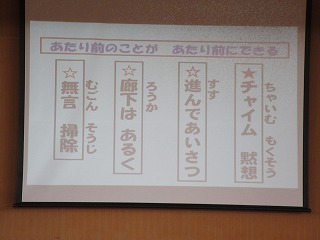 あたり前のことが　あたり前にできる
ちゃいむ　もくそう
★チャイム　黙想
すす
☆進んであいさつ
ろうか
☆廊下は　あるく
むごん　そうじ
☆無言　掃除